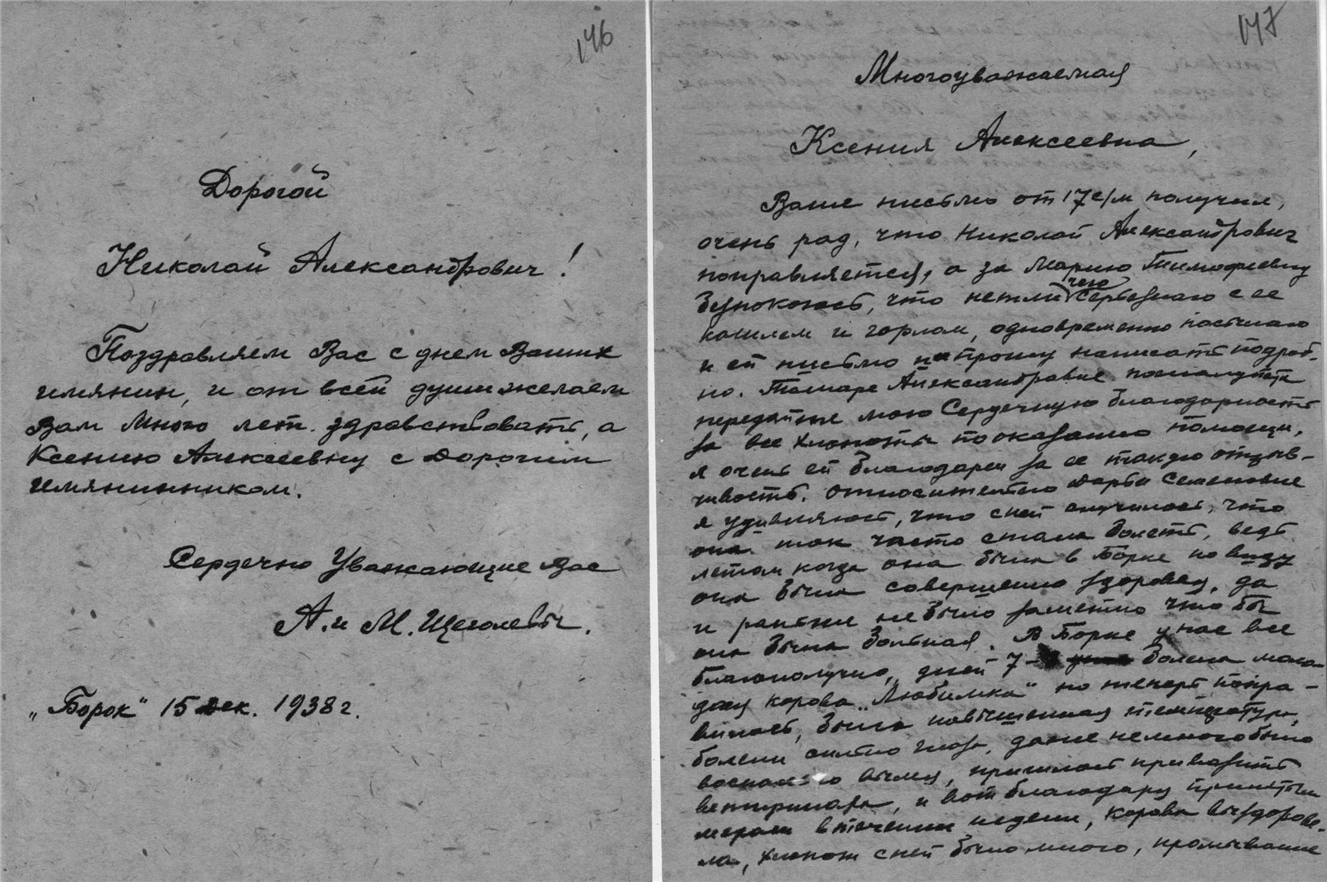 146
Дорогой
Николай Александрович!
Поздравляем Вас с днем Ваших
имянин, и от всей души желаем
Вам много лет здравствовать, а
Ксению Алексеевну с дорогим
имянинником.
Сердечно Уважающие Вас
А. и М. Щеголевы.
„Борок" 15 дек. 1938 г.
147
Многоуважаемая
Ксения Алексеевна,
Ваше письмо от 17 с/м получил,
очень рад, что Николай Александрович
поправляется, а за Марию Тимофеевну
что нетли чего серьезнаго с ее
кашлем и горлом, одновременно
и ей письмо и прошу написать подроб-
но. Тамаре Александровне пожалуйста
передайте мою Сердечную благодарность
за все хлопоты по оказанию помощи,
я очень ей благодарен за ее такую отзыв-
чивость. Относительно Дарьи Семеновне
я удивляюсь, что с ней случилось, что
она так часто стала болеть, ведь
летом когда она была в Борке по виду
она была совершенно здорова, да
и раньше не было заметно что бы
она была больная. В Борке у нас все
благополучно, дней 7 болела моло-
дая корова „Любимка" но теперь попра-
вилась, была повышенная температура,
болели сильно глаза, даже немного было
воспален вымя, пришлось привозить
ветиринара, и вот благодаря принятым
мерам в течении недели, корова выздорове-
ла, хлопот с ней было много, промывание